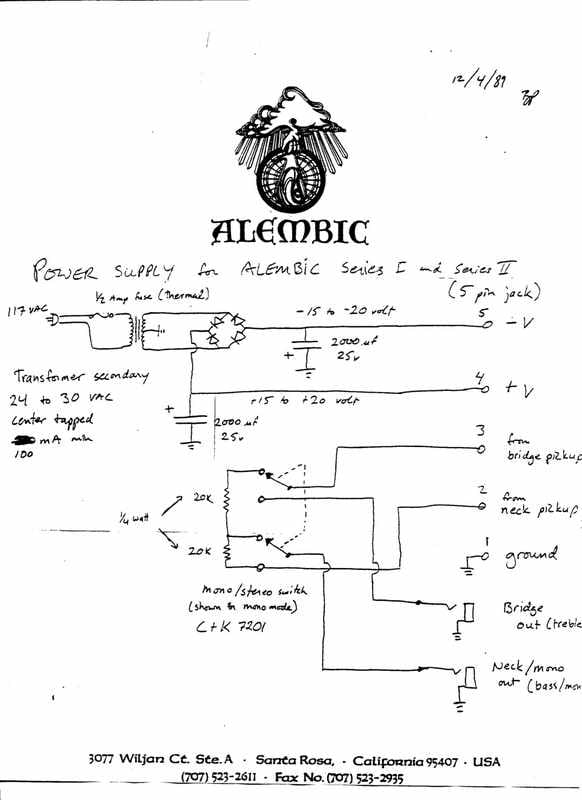 12/4/89
ALEMBIC
POWER SUPPLY for ALEMBIC Series I and Series II
(5 pin jack)
1/2 Amp fuse (thermal)
117 VAC
-15 to -20 volt
5
-V
2000 uf
25v
+
Transformer secondary
24 to 30 VAC
center tapped
mA min
100
4
+V
+15 to +20 volt
+
2000 uf
25v
3
from
bridge pickup
2
from
neck pickup
20K
1/4 watt
20K
1
ground
mono/stereo switch
(shown in mono mode)
C+K 7201
Bridge
out (treble
Neck/mono
out (bass/mon
3077 Wiljan Ct. Ste. A · Santa Rosa, · California 95407 · USA
(707) 523-2611 · Fax No. (707) 523-2935